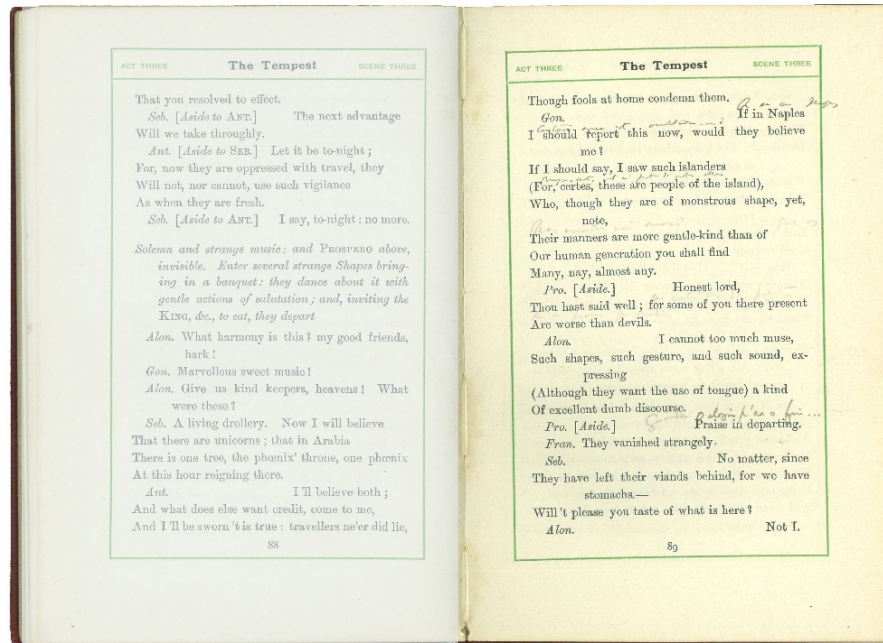 ACT THREE The Tempest SCENE THREE
That you resolved to effect.
Seb. [Aside to ANT.] The next advantage
Will we take throughly.
Ant. [Aside to SEB.] Let it be to-night ;
For, now they are oppressed with travel, they
Will not, nor cannot, use such vigilance
As when they are fresh.
Seb. [Aside to ANT.] I say, to-night : no more.
Solemn and strange music: and PROSPERO above,
invisible. Enter several strange Shapes bring-
ing in a banquet: they dance about it with
gentle actions of salutation; and, inviting the
KING, &c., to eat, they depart
Alon. What harmony is this? my good friends,
hark!
Gon. Marvellous sweet music!
Alon. Give us kind keepers, heavens! What
were these?
Seb. A living drollery. Now I will believe
That there are unicorns ; that in Arabia
There is one tree, the phœnix' throne, one phœnix
At this hour reigning there.
Ant. I 'll believe both ;
And what does else want credit, come to me,
And I 'll be sworn 't is true : travellers ne'er did lie,
88
ACT THREE The Tempest SCENE THREE
Though fools at home condemn them.
Gon. If in Naples
I should report this now, would they believe
me?
If I should say, I saw such islanders
(For, certes, these are people of the island),
Who, though they are of monstrous shape, yet,
note,
Their manners are more gentle-kind than of
Our human generation you shall find
Many, nay, almost any.
Pro. [Aside.] Honest lord,
Thou hast said well ; for some of you there present
Are worse than devils.
Alon. I cannot too much muse,
Such shapes, such gesture, and such sound, ex-
pressing
(Although they want the use of tongue) a kind
Of excellent dumb discourse.
Pro. [Aside.] Praise in departing.
Fran. They vanished strangely.
Seb. No matter, since
They have left their viands behind, for we have
stomachs.—
Will 't please you taste of what is here?
Alon. Not I.
89